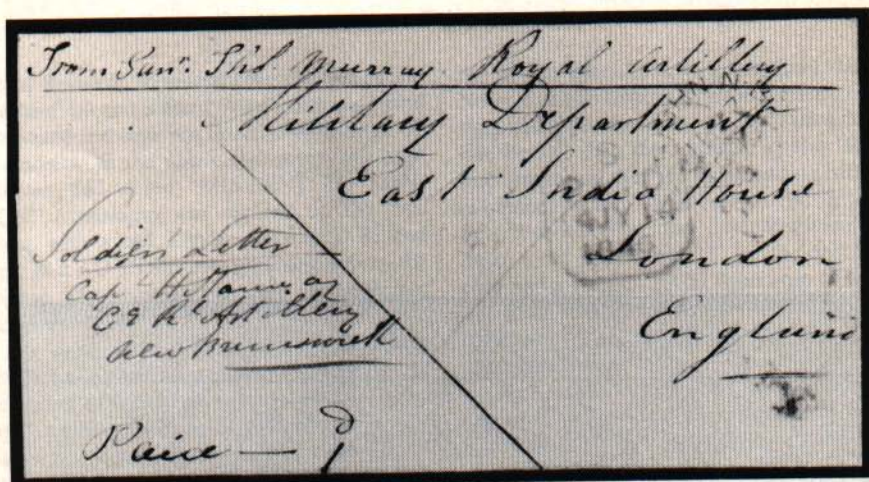 From Gunr. Thd. Murray Royal Artillery
Military Department
East India House
London
England
Soldiers' Letter
Capt H
Rl Artillery
New Brunswick
Paid — 1d
JY 14